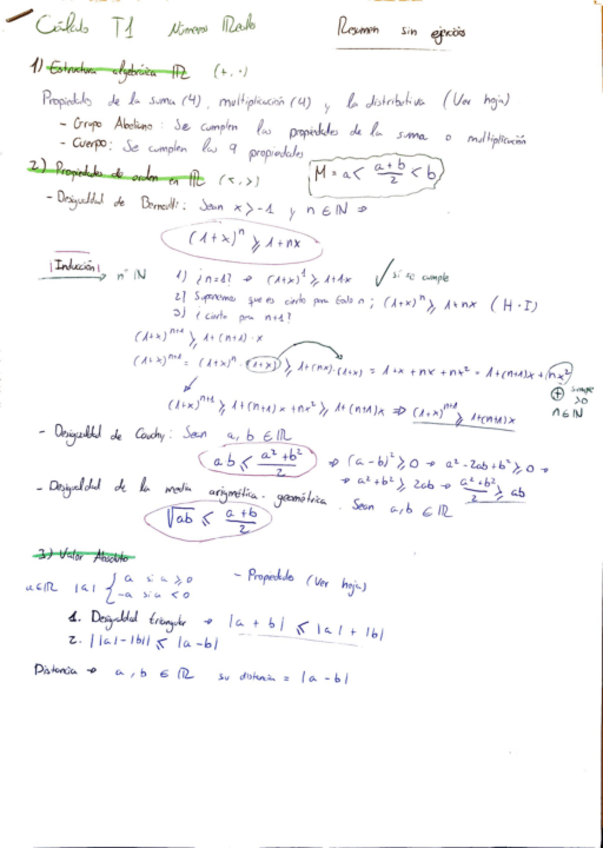 Cálculo T1 Números Reales Resumen sin ejercicios
1) Estructura algebraica ℝ (+, ·)
Propiedades de la suma (4), multiplicación (4) y la distributiva (Ver hoja)
- Grupo Abeliano: Se cumplen las propiedades de la suma o multiplicación
- Cuerpo: Se cumplen las 9 propiedades
2) Propiedades de orden en ℝ (<, >) M = a < (a+b)/2 < b
- Desigualdad de Bernoulli: Sean x > -1 y n ∈ ℕ ⇒
(1+x)^n ⩾ 1+nx
Inducción → nº ℕ 1) ¿n=1? → (1+x)^1 ⩾ 1+1x ✓ sí se cumple
2) Suponemos que es cierto para todo n; (1+x)^n ⩾ 1+nx (H·I)
3) ¿cierto para n+1?
(1+x)^{n+1} ⩾ 1+(n+1)·x
(1+x)^{n+1} = (1+x)^n · (1+x) ⩾ 1+(nx)·(1+x) = 1+x+nx+nx² = 1+(n+1)x+nx²
⊕ siempre
>0
n∈ℕ
(1+x)^{n+1} ⩾ 1+(n+1)x+nx² ⩾ 1+(n+1)x ⇒ (1+x)^{n+1} ⩾ 1+(n+1)x
- Desigualdad de Cauchy: Sean a, b ∈ ℝ
ab ⩽ (a²+b²)/2 → (a-b)² ⩾ 0 → a²-2ab+b² ⩾ 0 →
→ a²+b² ⩾ 2ab → (a²+b²)/2 ⩾ ab
- Desigualdad de la media arigmética - geométrica. Sean a,b ∈ ℝ
√ab ⩽ (a+b)/2
3) Valor Absoluto
a∈ℝ |a| { a si a ⩾ 0 - Propiedades (Ver hoja)
-a si a < 0
1. Desigualdad triangular → |a + b| ⩽ |a| + |b|
2. ||a|-|b|| ⩽ |a-b|
Distancia → a, b ∈ ℝ su distancia = |a-b|